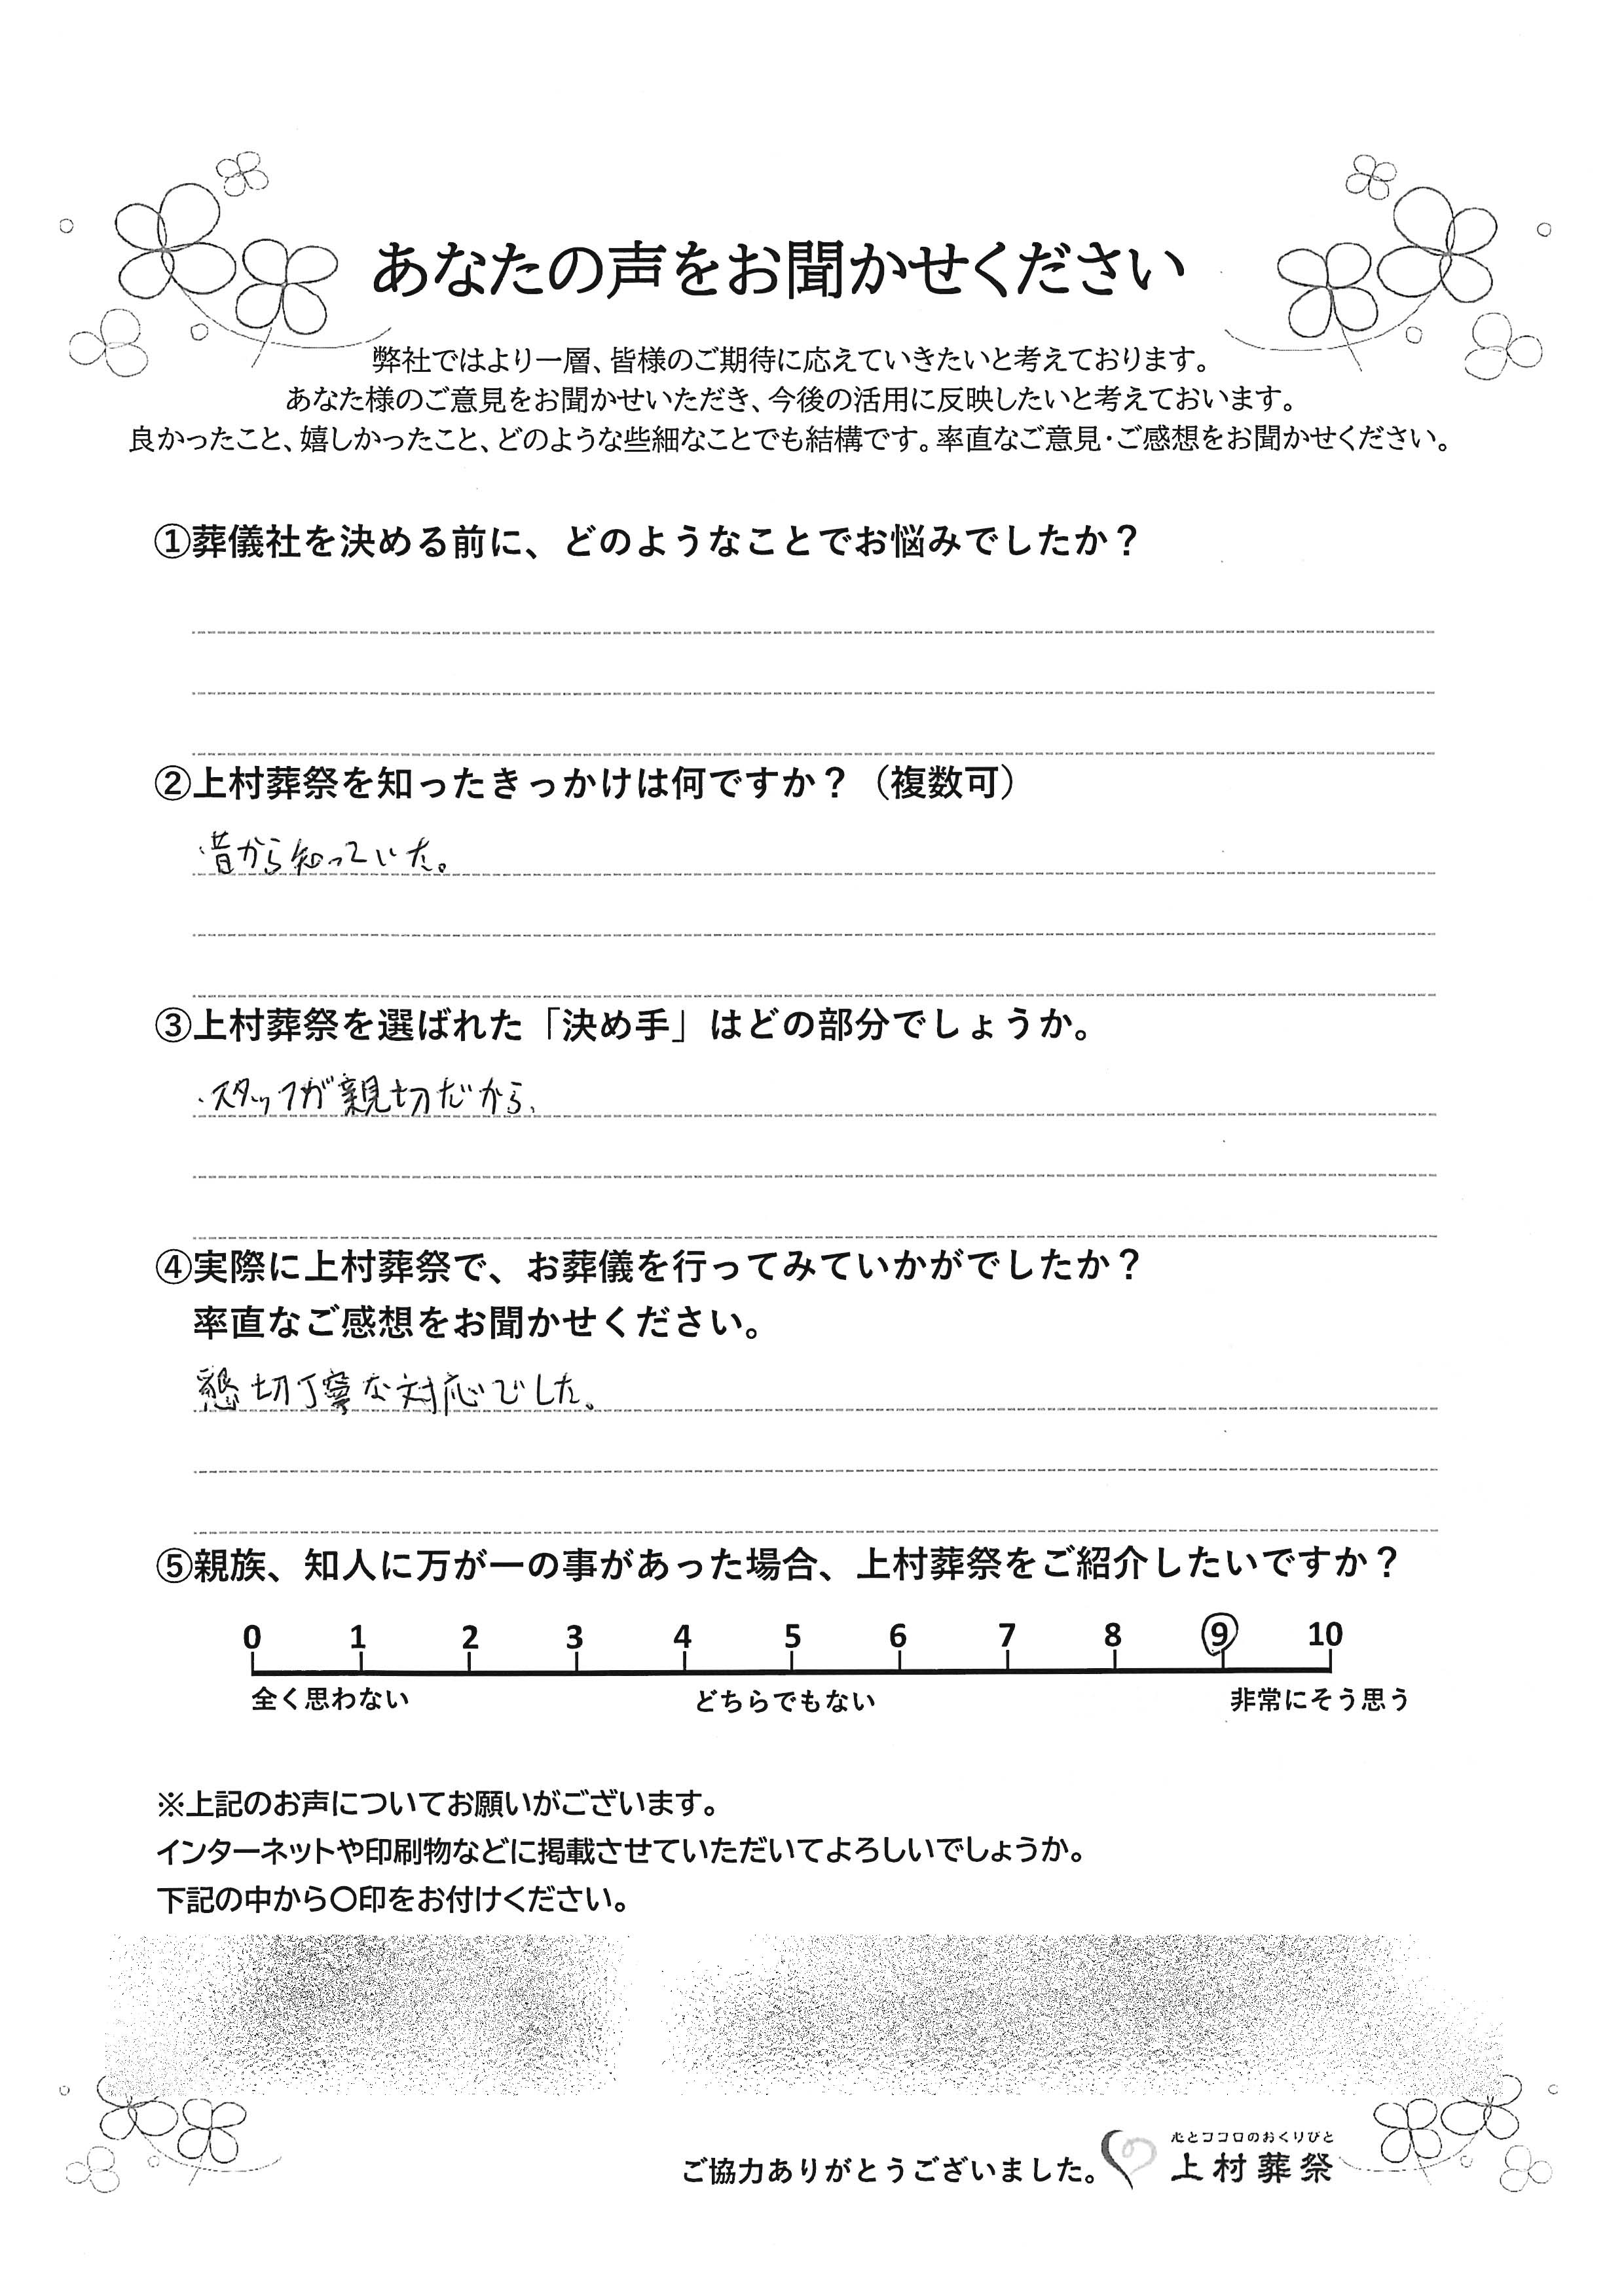 あなたの声をお聞かせください
弊社ではより一層、皆様のご期待に応えていきたいと考えております。
あなた様のご意見をお聞かせいただき、今後の活用に反映したいと考えておいます。
良かったこと、嬉しかったこと、どのような些細なことでも結構です。率直なご意見・ご感想をお聞かせください。
①葬儀社を決める前に、どのようなことでお悩みでしたか？
②上村葬祭を知ったきっかけは何ですか？（複数可）
・昔から知っていた。
③上村葬祭を選ばれた「決め手」はどの部分でしょうか。
・スタッフが親切だから、
④実際に上村葬祭で、お葬儀を行ってみていかがでしたか？
率直なご感想をお聞かせください。
懇切丁寧な対応でした。
⑤親族、知人に万が一の事があった場合、上村葬祭をご紹介したいですか？
0 1 2 3 4 5 6 7 8 9 10
全く思わない どちらでもない 非常にそう思う
※上記のお声についてお願いがございます。
インターネットや印刷物などに掲載させていただいてよろしいでしょうか。
下記の中から〇印をお付けください。
心とココロのおくりびと
ご協力ありがとうございました。 上村葬祭